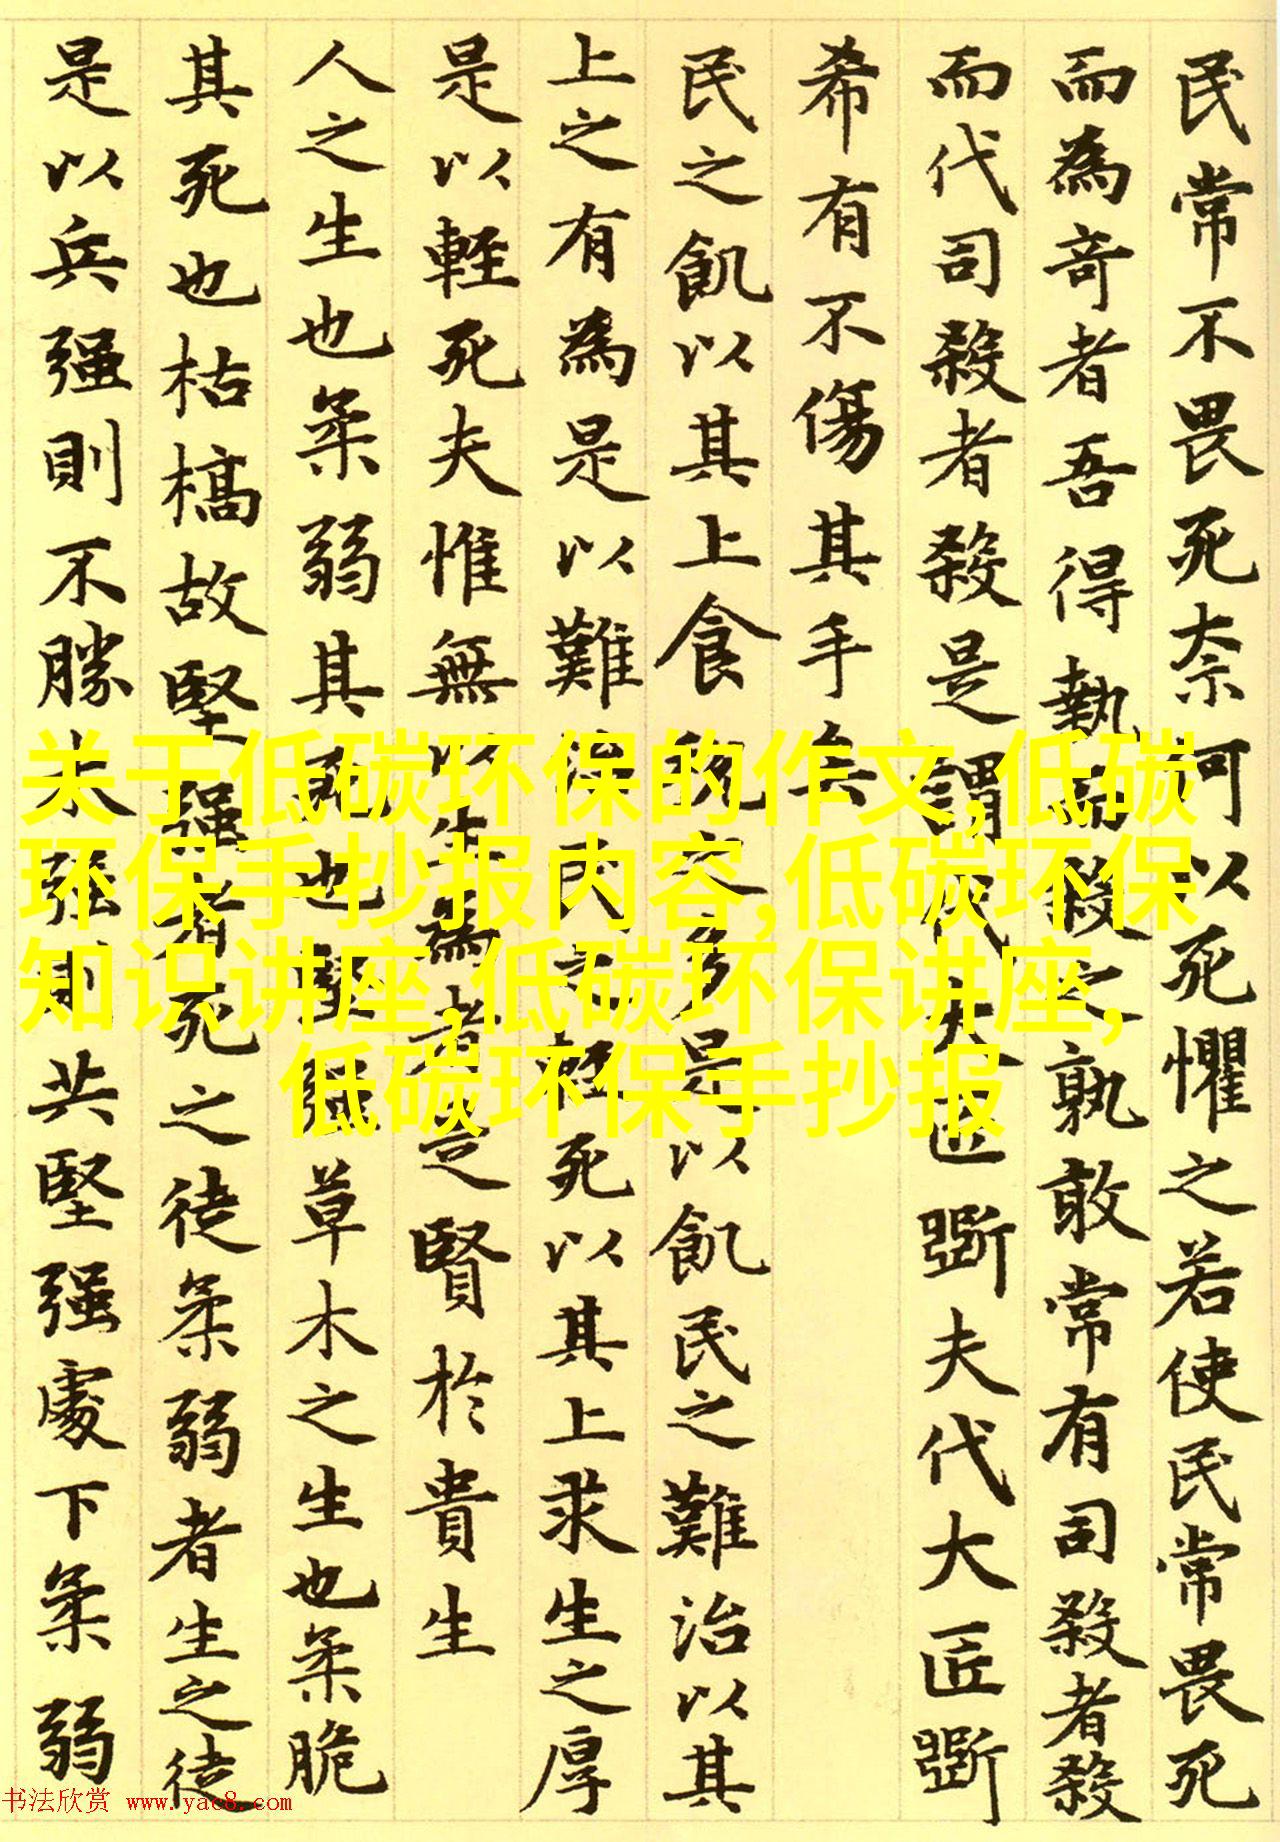 民常不畏死奈何以死懼之若使民常畏死
而為奇者吾得執而殺之孰敢常有司殺者殺
而代司殺者殺是謂代大匠斲夫代大匠斲
希有不傷其手矣
民之飢以其上食稅之多是以飢民之難治以其
上之有為是以難治民之輕死以其上求生之厚
是以輕死夫惟無以生為者是賢於貴生
人之生也柔弱其死也堅强草木之生也柔脆
其死也枯槁故堅强者死之徒柔弱者生之徒
是以兵强則不勝木强則共堅强處下柔弱
关于低碳环保的作文,低碳
环保手抄报内容,低碳环保
知识讲座,低碳环保讲座,
低碳环保手抄报
书法欣赏 www.yac8.com